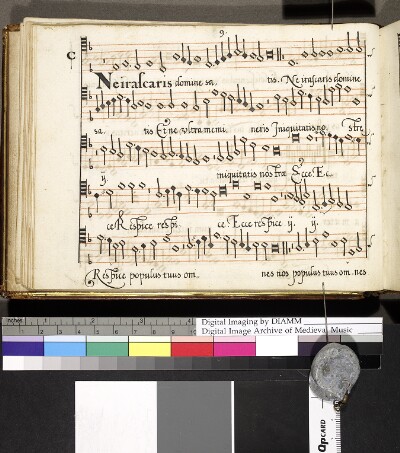 9.
C
Neirascaris domine sa. tis. Ne irascaris domine
sa. tis Et ne ultra memi. neris Iniquitatis no. stre
ij. iniquitatis nostræ Ecce Ec.
ce Respice respi. ce Ecce respice ij. ij.
Respice populus tuus om. nes nos populus tuus om. nes
Digital Imaging by DIAMM
Digital Image Archive of Medieval Music
QPCARD